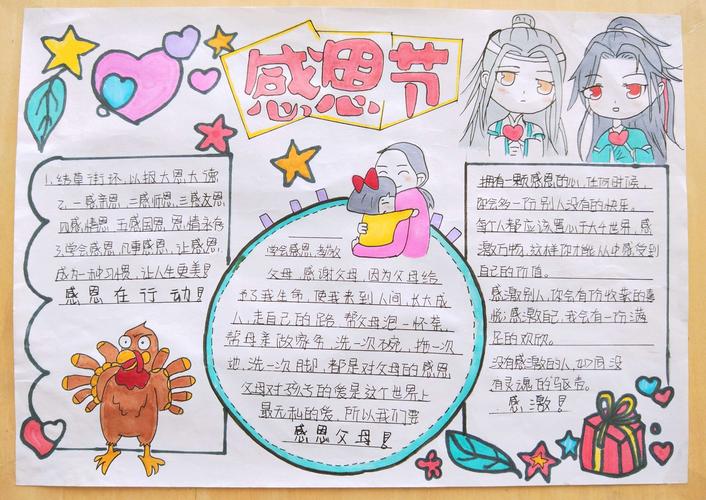 感恩节
1.结草衔环,以报大恩大德
2.一感亲恩,二感师恩,三感友恩
四感情恩,五感国恩,恩情永存
3.学会感恩,凡事感恩,让感恩
成为一种习惯,让人生更美!
感恩在行动!
学会感恩,孝敬
父母,感谢父母,因为父母给
予了我生命,使我来到人间,长大成
人,走自己的路,帮父母泡一杯茶,
帮母亲做家务,洗一次碗,拖一次
地,洗一次脚,都是对父母的感恩
父母对孩子的爱是这个世界上
最无私的爱,所以我们要
感恩父母!
拥有一颗感恩的心,任何时候,
你会多一份别人没有的快乐。
每个人都应该置心于大千世界,感
激万物,这样你才能从中感受到
自己的价值。
感激别人,你会有一份收获的喜
悦;感激自己,我会有一份满
足的欢欣。
没有感激的人,如同没
有灵魂的躯壳。
感激!